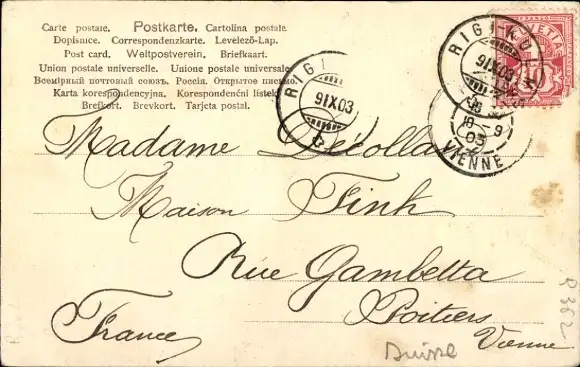 Carte postale. Postkarte. Cartolina postale
Dopisnice. Correspondenzkarte. Levelező-Lap.
Post card. Weltpostverein. Briefkaart.
Union postale universelle. Unione postale universale
Всемірный почтовый союзъ. Россія. Открытое письмо.
Karta korespondencyjna. Korespondenční lístek
Brefkort. Brevkort. Tarjeta postal.
RIGI
9 IX 03
RIGI KU
9 IX 03
10 9
03
VIENNE
10
Madame
Maison Fink
Rue Gambetta
Poitiers
Vienne
France
Suisse